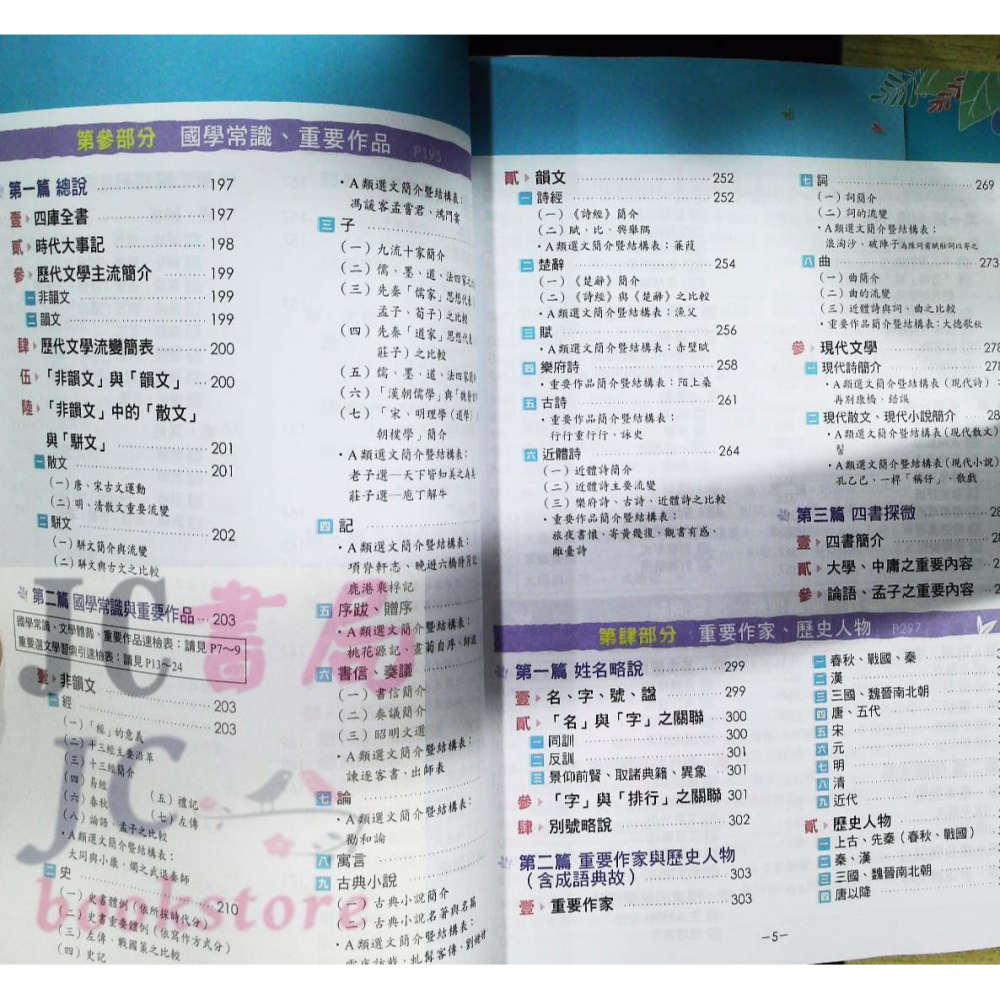 第參部分 國學常識、重要作品 P195
第一篇 總說 197
壹 四庫全書 197
貳 時代大事記 198
參 歷代文學主流簡介 199
一 非韻文 199
二 韻文 199
肆 歷代文學流變簡表 200
伍 「非韻文」與「韻文」 200
陸 「非韻文」中的「散文」
與「駢文」 201
一 散文 201
(一) 唐、宋古文運動
(二) 明、清散文重要流變
二 駢文 202
(一) 駢文簡介與流變
(二) 駢文與古文之比較
第二篇 國學常識與重要作品 203
國學常識、文學體裁、重要作品速檢表:請見 P7~9
重要選文學習索引速檢表:請見 P13~24
壹 非韻文 203
一 經 203
(一) 「經」的意義
(二) 十三經主要沿革
(三) 十三經簡介
(四) 易經 (五) 禮記
(六) 春秋 (七) 左傳
(八) 論語、孟子之比較
・A類選文簡介暨結構表:
大同與小康、燭之武退秦師
二 史 210
(一) 史書體例(依所採時代分)
(二) 史書重要體例(依寫作方式分)
(三) 左傳、戰國策之比較
(四) 史記
・A類選文簡介暨結構表:
馮諼客孟嘗君、鴻門宴
三 子
(一) 九流十家簡介
(二) 儒、墨、道、法四家之
(三) 先秦「儒家」思想代表
孟子、荀子)之比較
(四) 先秦「道家」思想代表
莊子)之比較
(五) 儒、墨、道、法四家
(六) 「漢朝儒學」與「魏晉
(七) 「宋、明理學(道學)
朝樸學」簡介
・A類選文簡介暨結構表:
老子選—天下皆知美之為美
莊子選—庖丁解牛
四 記
・A類選文簡介暨結構表:
項脊軒志、晚遊六橋待月記
鹿港乘桴記
五 序跋、贈序
・A類選文簡介暨結構表:
桃花源記、畫菊自序、師說
六 書信、奏議
(一) 書信簡介
(二) 奏議簡介
(三) 昭明文選
・A類選文簡介暨結構表:
諫逐客書、出師表
七 論
・A類選文簡介暨結構表:
勸和論
八 寓言
九 古典小說
(一) 古典小說簡介
(二) 古典小說名著與名篇
・A類選文簡介暨結構表:
虬髯客傳、劉姥姥
貳 韻文 252
一 詩經 252
(一) 《詩經》簡介
(二) 賦、比、興舉隅
・A類選文簡介暨結構表:蒹葭
二 楚辭 254
(一) 《楚辭》簡介
(二) 《詩經》與《楚辭》之比較
・A類選文簡介暨結構表:漁父
三 賦 256
・A類選文簡介暨結構表:赤壁賦
四 樂府詩 258
・重要作品簡介暨結構表:陌上桑
五 古詩 261
・重要作品簡介暨結構表:
行行重行行、詠史
六 近體詩 264
(一) 近體詩簡介
(二) 近體詩主要流變
(三) 樂府詩、古詩、近體詩之比較
・重要作品簡介暨結構表:
旅夜書懷、寄黃幾復、觀書有感、
雜臺詩
七 詞 269
(一) 詞簡介
(二) 詞的流變
・A類選文簡介暨結構表:
浪淘沙、破陣子為陳同甫賦壯詞以寄之
八 曲 273
(一) 曲簡介
(二) 曲的流變
(三) 近體詩與詞、曲之比較
・重要作品簡介暨結構表:大德歌秋
參 現代文學 278
一 現代詩簡介 278
・A類選文簡介暨結構表(現代詩):
再別康橋、錯誤
二 現代散文、現代小說簡介
・A類選文簡介暨結構表(現代散文)
髻
・A類選文簡介暨結構表(現代小說)
孔乙己、一桿「稱仔」、散戲
第三篇 四書探微
壹 四書簡介
貳 大學、中庸之重要內容
參 論語、孟子之重要內容
第肆部分 重要作家、歷史人物 P297
第一篇 姓名略說 299
壹 名、字、號、諡 299
貳 「名」與「字」之關聯 300
一 同訓 300
二 反訓 301
三 景仰前賢、取諸典籍、異象 301
參 「字」與「排行」之關聯 301
肆 別號略說 302
第二篇 重要作家與歷史人物
(含成語典故) 303
壹 重要作家 303
一 春秋、戰國、秦
二 漢
三 三國、魏晉南北朝
四 唐、五代
五 宋
六 元
七 明
八 清
九 近代
貳 歷史人物
一 上古、先秦(春秋、戰國)
二 秦、漢
三 三國、魏晉南北朝
四 唐以降
—5—
JC書局
JC
bookstore